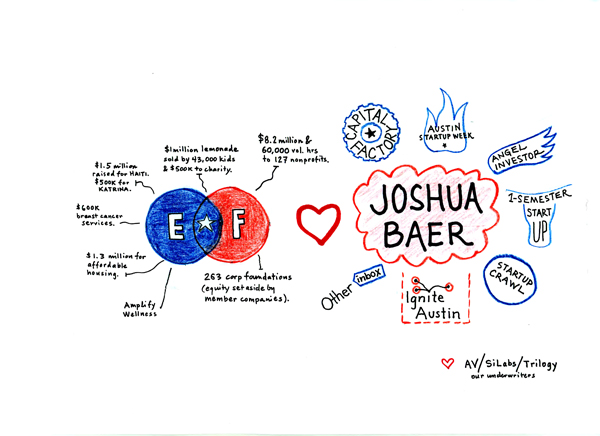 $1.5 million
raised for HAITI.
$500K for
KATRINA.
$1million lemonade
sold by 43,000 kids
& $500K to charity.
$8.2 million &
60,000 vol. hrs
to 127 nonprofits.
$600K
breast cancer
services.
$1.3 million for
affordable
housing.
Amplify
Wellness
E F
263 corp foundations
(equity set aside by
member companies).
CAPITAL
FACTORY
AUSTIN
STARTUP WEEK
ANGEL
INVESTOR
JOSHUA
BAER
1-SEMESTER
START
UP
STARTUP
CRAWL
Ignite
Austin
Other inbox
AV/SiLabs/Trilogy
our underwriters